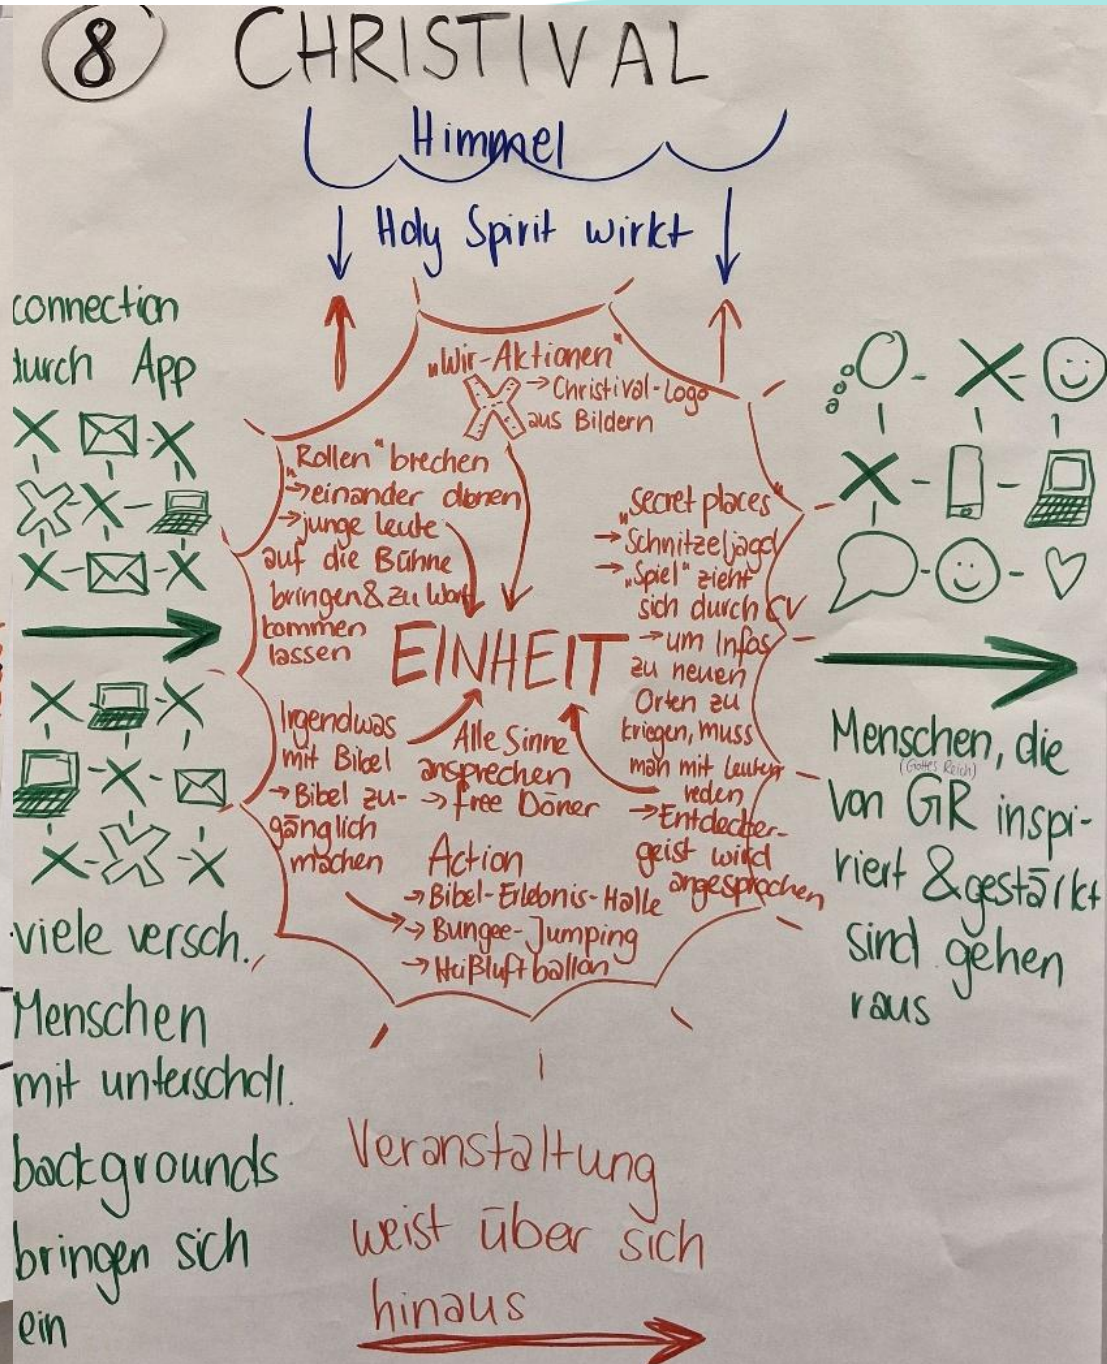 8 CHRISTIVAL
Himmel
Holy Spirit wirkt
connection
durch App
viele versch.
Menschen
mit unterschdl.
backgrounds
bringen sich
ein
„Wir-Aktionen"
→ Christival-Logo
aus Bildern
„Rollen" brechen
→ einander dienen
→ junge Leute
auf die Bühne
bringen & zu Wort
kommen
lassen
„secret places"
→ Schnitzeljagd
→ „Spiel" zieht
sich durch CV
→ um Infos
zu neuen
Orten zu
kriegen, muss
man mit Leuten
reden
→ Entdecker-
geist wird
angesprochen
EINHEIT
Irgendwas
mit Bibel
→ Bibel zu-
gänglich
machen
Alle Sinne
ansprechen
→ free Döner
Action
→ Bibel-Erlebnis-Halle
→ Bungee-Jumping
→ Heißluftballon
Menschen, die
(Gottes Reich)
von GR inspi-
riert & gestärkt
sind gehen
raus
Veranstaltung
weist über sich
hinaus